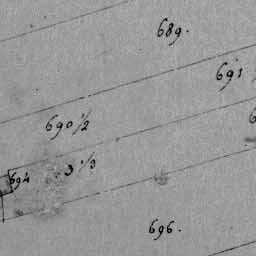 689.
691
690 1/2
694
3 1/3
696.